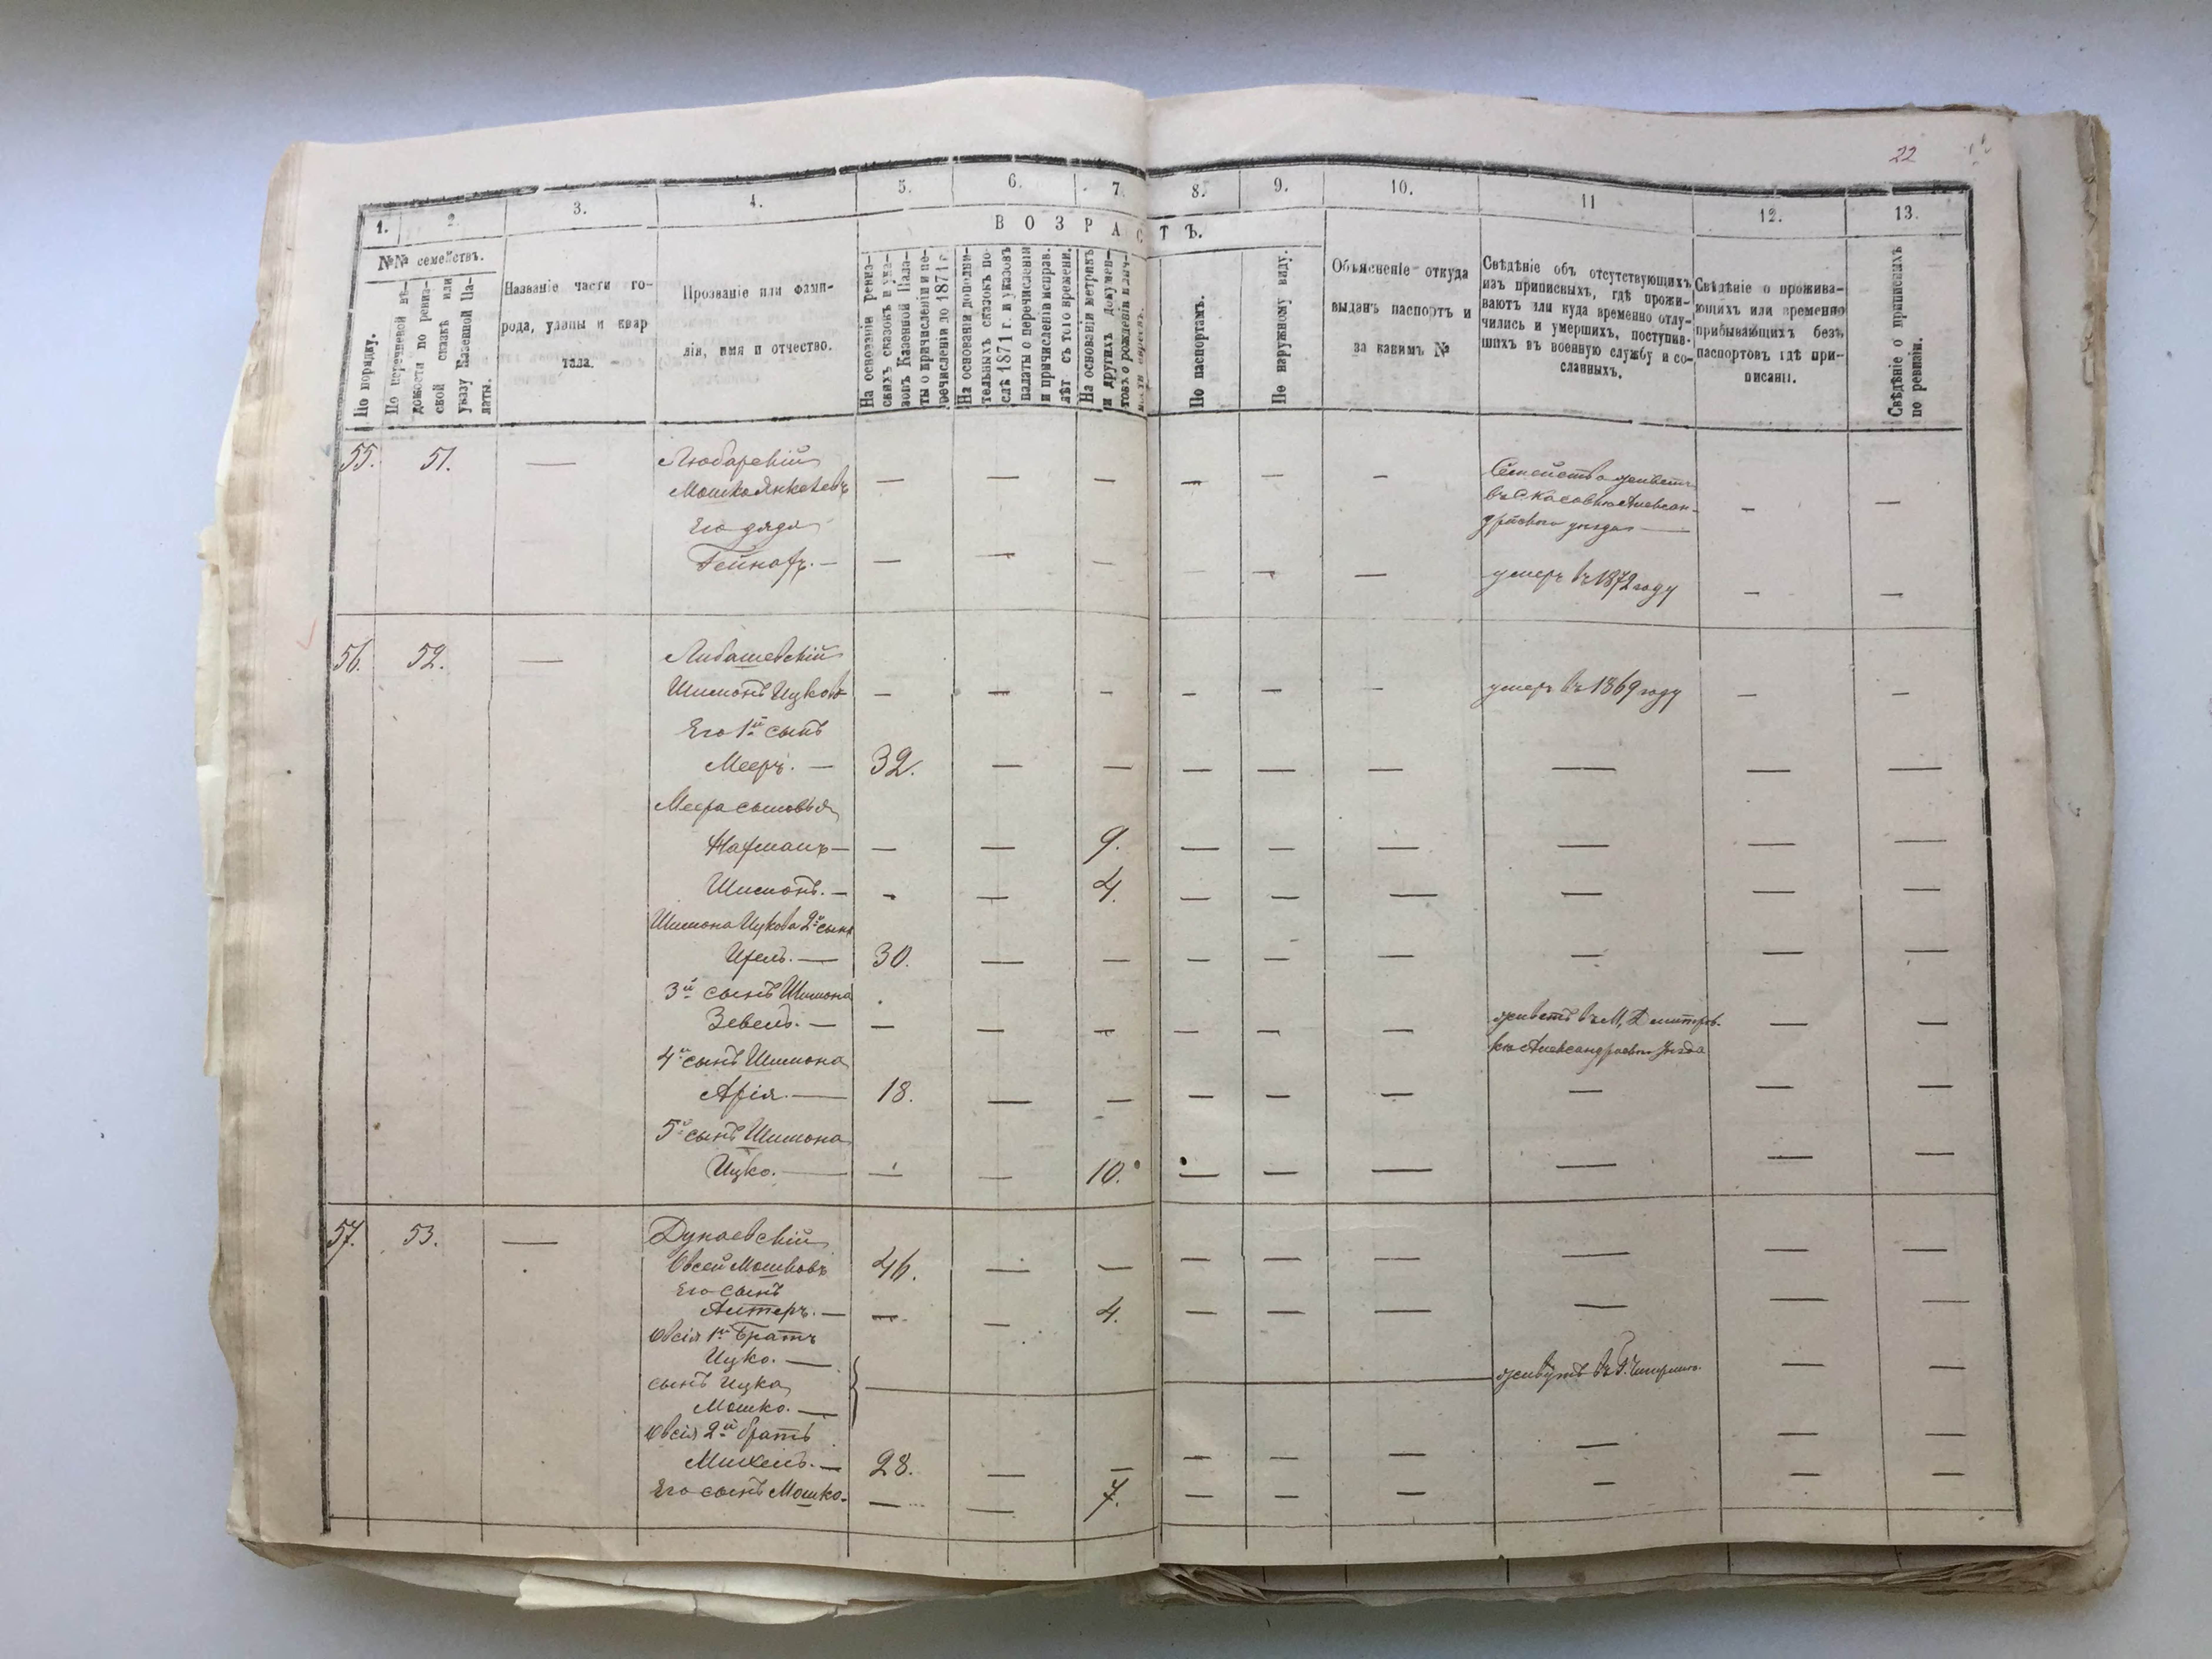 22
1.
2.
3.
4.
5.
6.
7.
8.
9.
10.
11
12.
13.
№№ семействъ.
ВОЗРАСТЪ.
По порядку.
По перечневой вѣ-
домости по ревиз-
ской сказкѣ или
указу Казенной Па-
латы.
Названіе части го-
рода, улицы и квар
тала.
Прозваніе или фами-
лія, имя и отчество.
На основаніи ревиз-
скихъ сказокъ и ука-
зовъ Казенной Пала-
ты о причисленіи и пе-
речисленіи до 1871 г.
На основаніи дополни-
тельныхъ сказокъ по-
слѣ 1871 г. и указовъ
палаты о перечисленіи
и причисленіи исправ.
лѣт съ того времени.
На основаніи метрикъ
и другихъ докумен-
товъ о рожденіи
По паспортамъ.
По наружному виду.
Объясненіе откуда
выданъ паспортъ и
за какимъ №
Свѣдѣніе объ отсутствующихъ
изъ приписныхъ, гдѣ прожи-
ваютъ или куда временно отлу-
чились и умершихъ, поступив-
шихъ въ военную службу и со-
сланныхъ.
Свѣдѣніе о прожива-
ющихъ или временно
прибывающихъ безъ
паспортовъ гдѣ при-
писаны.
Свѣдѣніе о приписныхъ
по ревизіи.
55. 51. — Любарскій
Мошко Янкелевъ — — — — — — Семейство живетъ — —
Его дядя
въ Александрійскаго уѣзда
— — — — — — умеръ въ 1872 году — —
56. 52. — Любашевскій
Шимонъ Ицковъ — — — — — — умеръ въ 1869 году — —
Его 1й сынъ
Мееръ. — 32. — — — — — — — —
Меера сыновья
Нахманъ — — — 9. — — — — — —
Шимонъ. — — — 4. — — — — — —
Шимона Ицкова 2й сынъ
30. — — — — — — — —
3й сынъ Шимона
Зевель. — — — — — — — живетъ въ М, Дмитров- — —
кѣ Александрійскаго уѣзда
4й сынъ Шимона
Арія. — 18. — — — — — — — —
5й сынъ Шимона
Ицко. — — — 10. — — — — — —
57. 53. — Дунаевскій
Овсей Мошковъ 46. — — — — — — — —
Его сынъ
Алтеръ. — — — 4. — — — — — —
Овсія 1й братъ
Ицко. —
сынъ Ицка — живутъ въ — —
Мошко. —
Овсія 2й братъ
Михель. — 28. — — — — — — — —
Его сынъ Мошко. — — 7. — — — — — —